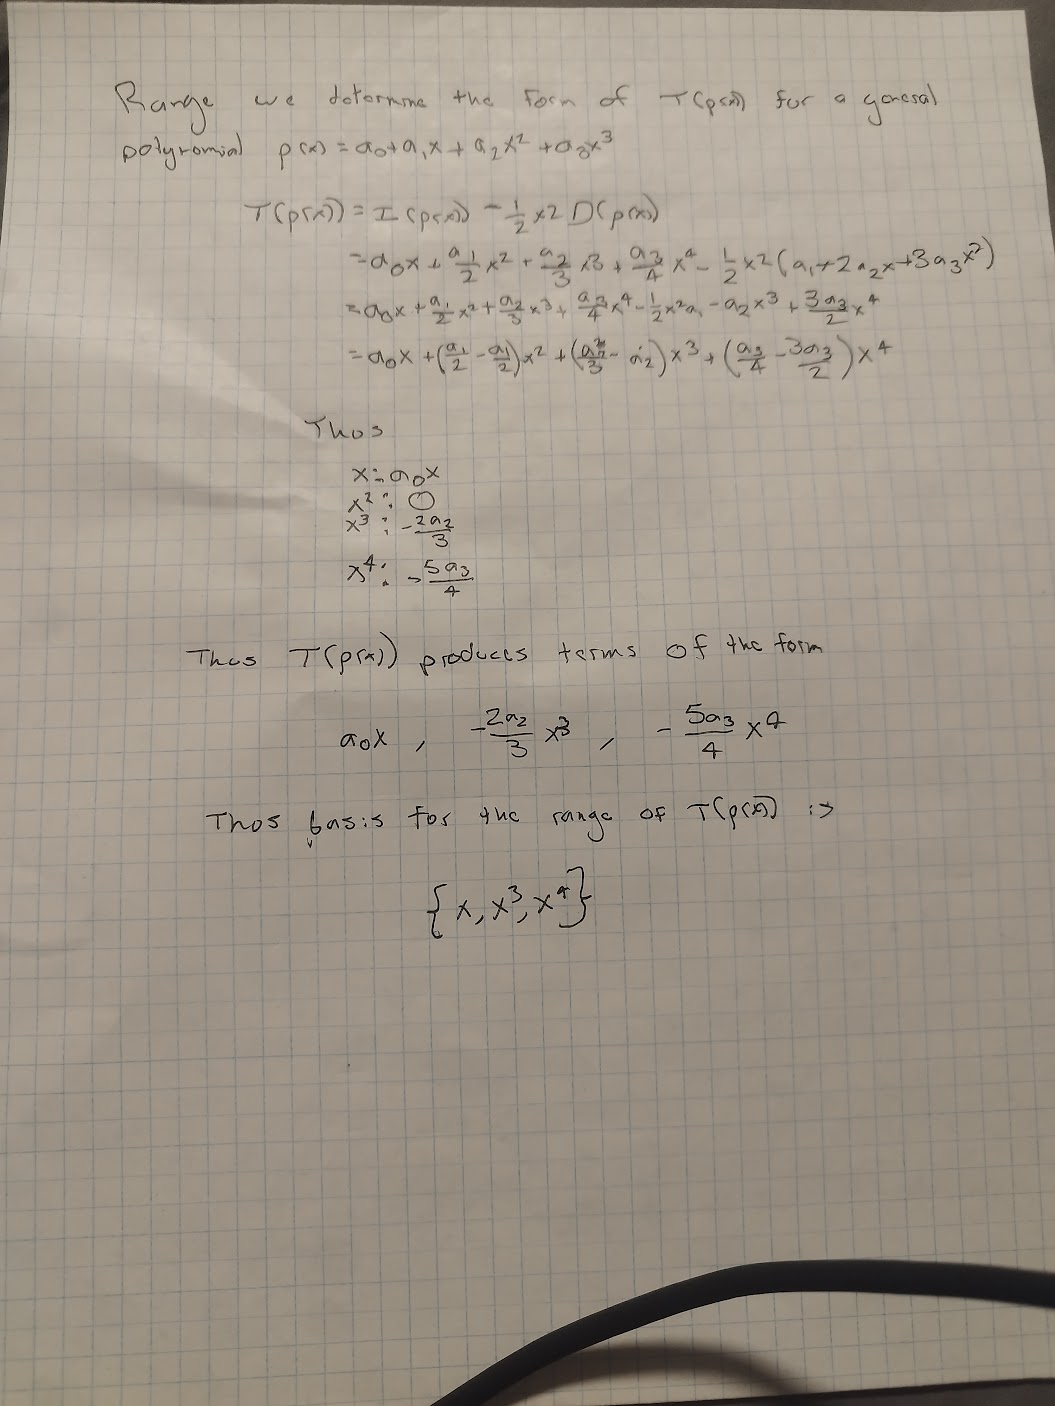 Range we determine the form of T(p(x)) for a general
polynomial p(x) = a₀+a₁x + a₂x² + a₃x³
T(p(x)) = I(p(x)) - 1/2 x2 D(p(x))
= a₀x + a₁/2 x² + a₂/3 x3 + a₃/4 x⁴ - 1/2 x2 (a₁+2a₂x+3a₃x²)
= a₀x + a₁/2 x² + a₂/3 x³ + a₃/4 x⁴ - 1/2 x²a₁ - a₂x³ + 3a₃/2 x⁴
= a₀x + (a₁/2 - a₁/2)x² + (a₂/3 - a₂)x³ + (a₃/4 - 3a₃/2)x⁴
Thus
x: a₀x
x²: 0
x³: -2a₂/3
x⁴: -5a₃/4
Thus T(p(x)) produces terms of the form
a₀x , -2a₂/3 x³ , -5a₃/4 x⁴
Thus basis for the range of T(p(x)) is
{x, x³, x⁴}